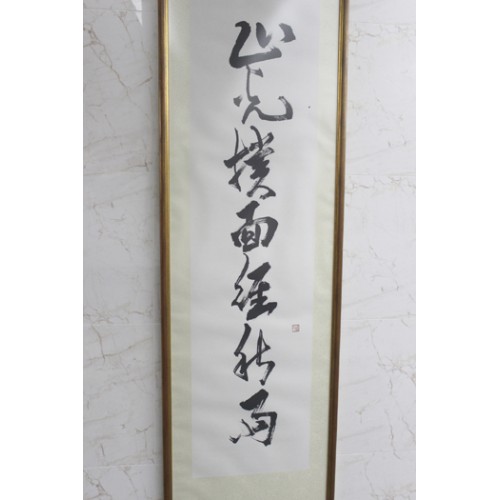 山光撲面經秋雨